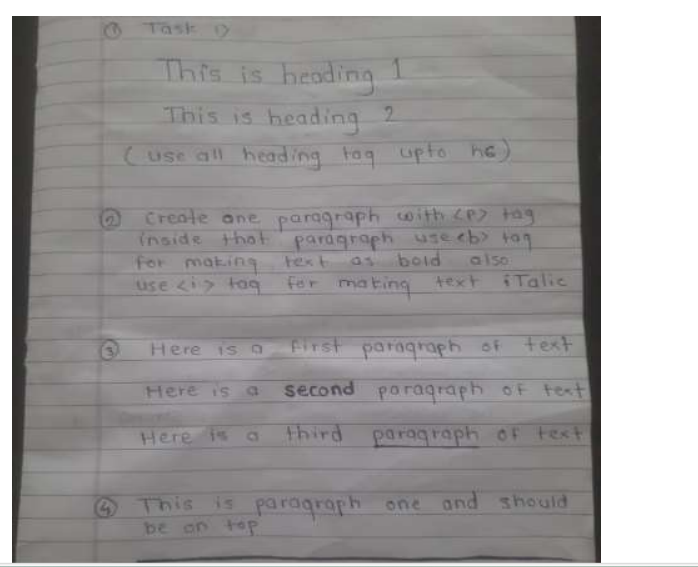 ① Task 1>
This is heading 1
This is heading 2
( use all heading tag upto h6 )
② Create one paragraph with <p> tag
inside that paragraph use <b> tag
for making text as bold also
use <i> tag for making text iTalic
③ Here is a first paragraph of text
Here is a second paragraph of text
Here is a third paragraph of text
④ This is paragraph one and should
be on top